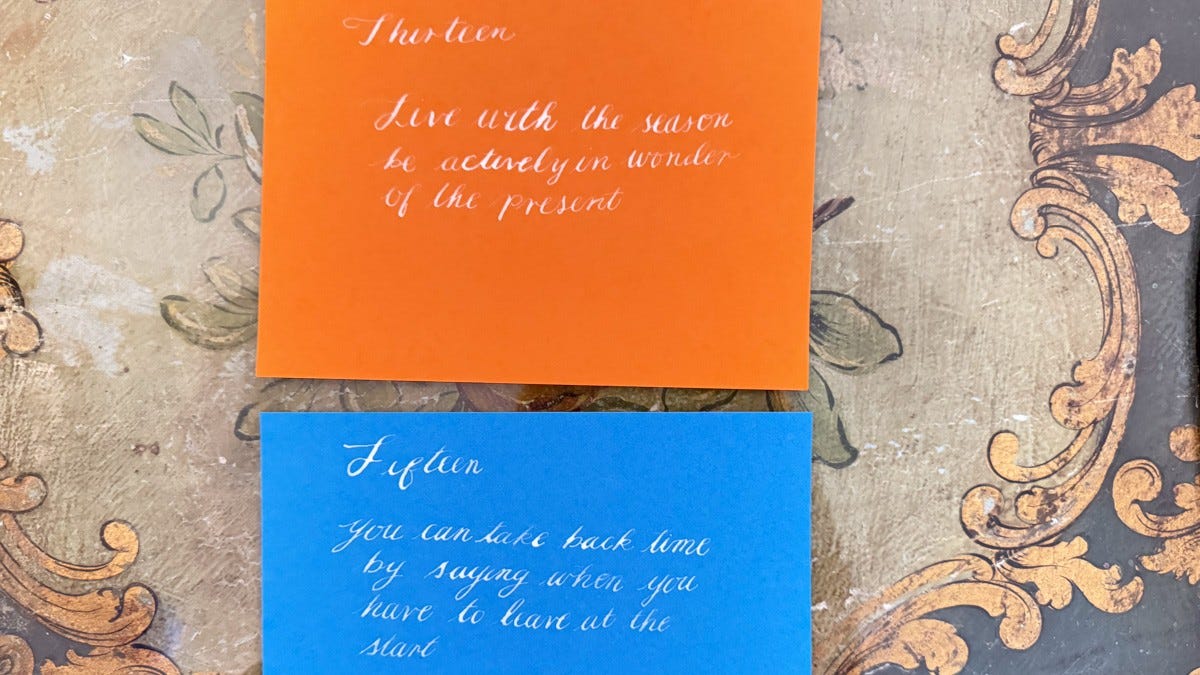 Thirteen
Live with the season
be actively in wonder
of the present
Fifteen
you can take back time
by saying when you
have to leave at the
start